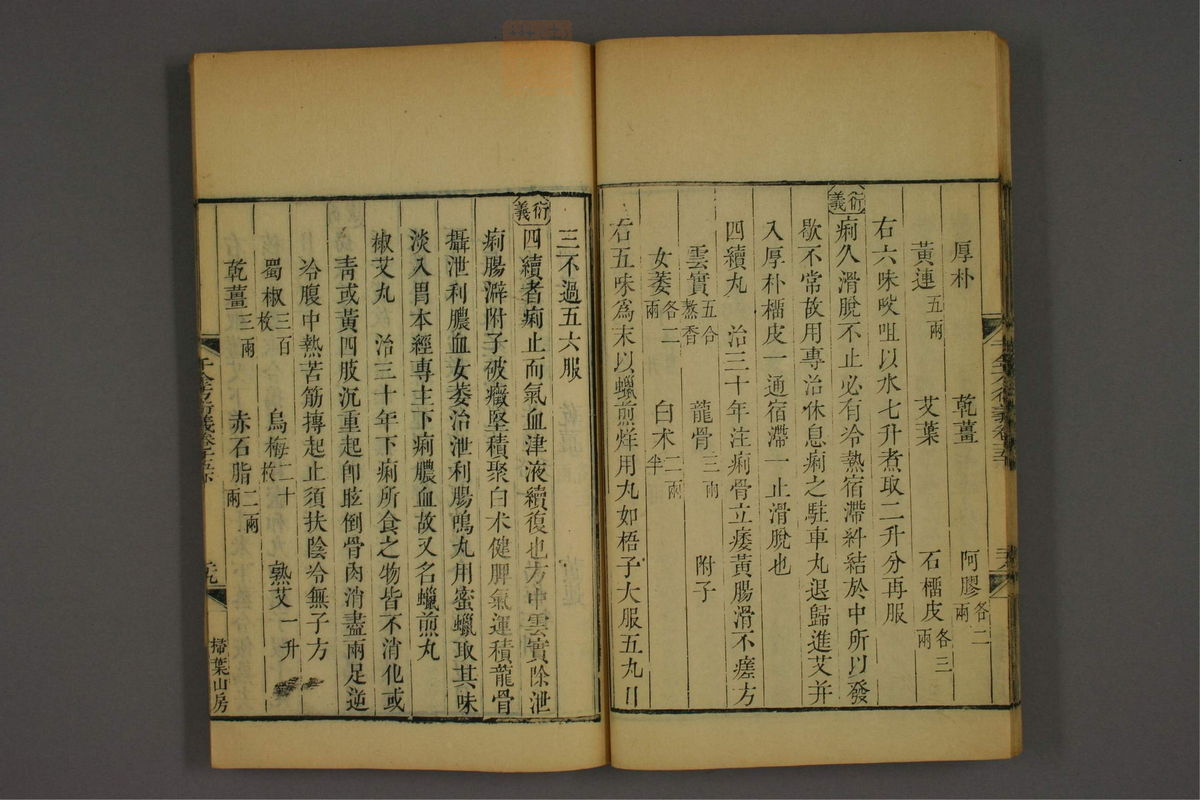 厚朴　乾薑　阿膠各二兩
黃連五兩　艾葉　石榴皮各三兩
右六味㕮咀以水七升煮取二升分再服
衍義痢久滑脫不止必有冷熱宿滯糾結於中所以發
歇不常故用專治休息痢之駐車丸退歸進艾并
入厚朴榴皮一通宿滯一止滑脫也
四續丸　治三十年注痢骨立痿黃腸滑不瘥方
雲實五合蒸香　龍骨三兩　附子
女萎各二兩　白朮二兩半
右五味爲末以蠟煎烊用丸如梧子大服五丸日
三不過五六服
衍義四續者痢止而氣血津液續復也方中雲實除泄
痢腸澼附子破癥堅積聚白朮健脾氣運積龍骨
攝泄利膿血女萎治泄利腸鳴丸用蜜蠟取其味
淡入胃本經專主下痢膿血故又名蠟煎丸
椒艾丸　治三十年下痢所食之物皆不消化或
靑或黃四肢沉重起卽眩倒骨肉消盡兩足逆
冷腹中熱苦筋轉起止須扶陰冷無子方
蜀椒三百枚　烏梅二十枚　熟艾一升
乾薑三兩　赤石脂二兩
千金方衍義卷十五
三九
掃葉山房